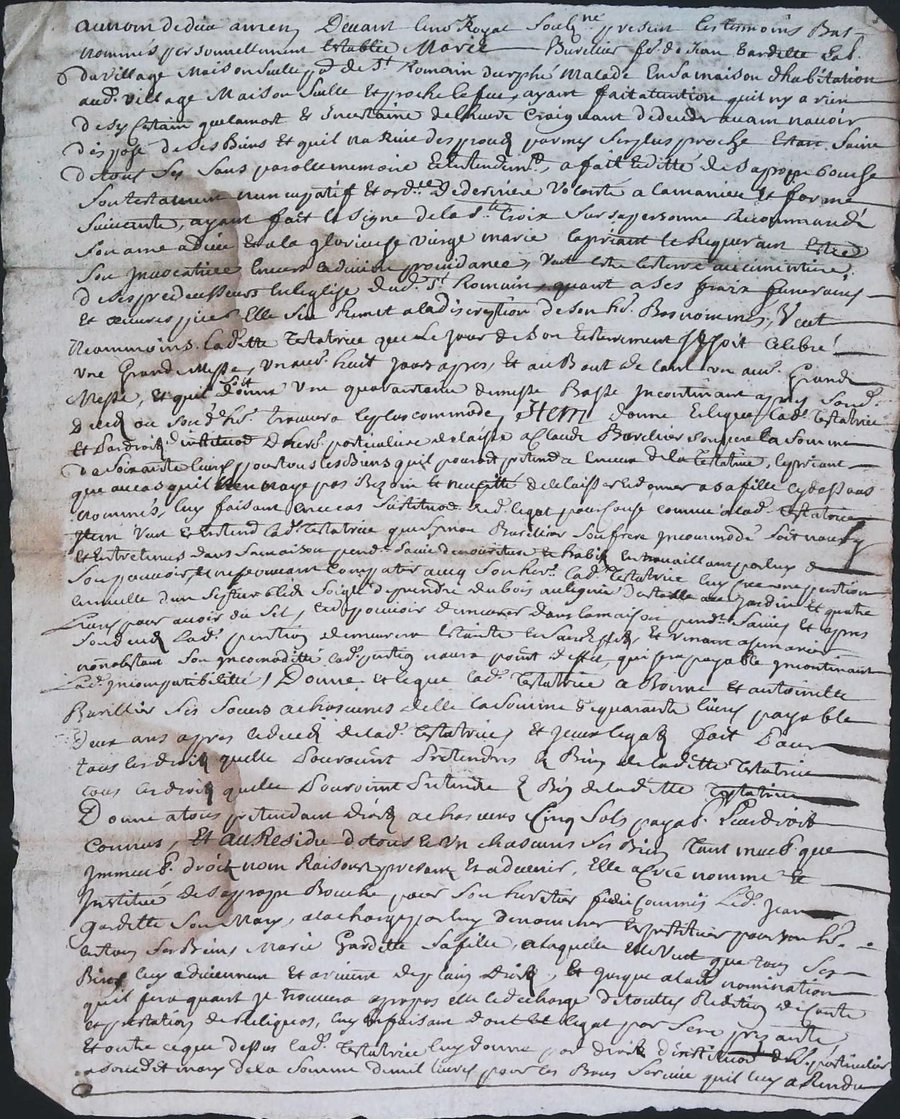 au nom de dieu amen Devant le no.re Royal Soub.ne present les temoins Bas
nommés personnellement establie Marie Burellier fe de Jean Gardette Lab.
du village Maison Seulle p.sse de S.t Romain durphé Malade En sa maison dhabitation
aud. village Maison Seulle Et proche le feu, ayant fait attention quil ny a rien
de sy Certain que la mort et d'incertaine de lheure Craignant de deceder avant navoir
disposé de ses Biens et quil na Rive des proces parmy ses plus proche Estant Saine
de tous ses Sans parolle memoire et Entendem.t, a fait et ditté de sa propre bouche
Son testament nuncupatif et ord.ce de derniere Volonté a la maniere et forme
Suivante, ayant fait le Signe de la S.te Croix Sur sa personne Recommandé
Son ame a dieu Et a la glorieuse vierge marie la priant le Requerant Estre
Son Invocatrice Envers la divine providance, Veut Estre Enterré au cimentiere
de ses predecesseurs En leglise dud. S.t Romain, quant a ses fraix funeraires
Et oeuvres pies Elle s'en Remet a la discretion de son her. Bas nommés, Veut
Neammoins lad.itte Testatrice que le Jour de Son Enterrement Il soit Celebré
Une Grande Messe, Un autre huit Jours apres, et au Bout de lan un autre Grande
Messe, et que soit donné Une quarantaine de messe Basse Incontinant apres Son d.
deced ou Son d. her. trouvera le plus commode, Item donne Et legue lad. Testatrice
Et Par droit d'institution d'here particuliere delaisse a Claude Burellier son frere la Somme
de Soixante livres pour tous les Biens quil pourroit pretendre En ceux de la Testatrice, le priant
que au cas quil nen aye pas Bezoin et necessité de le laisser et donner a sa fille cy dessous
nommés, luy faisant En ce cas Substitution dud. legat pour Causes connue a lad. Testatrice
Item Veut et Entend lad. Testatrice que Simon Burellier Son frere Incommodé Soit nourry
et Entretenus dans Sa maison pend. Sa vie de nourriture et habits En travaillant par luy de
Son pouvoir, et ne pouvant Compater avec Son her. lad. Testatrice luy donne pention
annuelle d'un Septier bled Seigle de prendre du bois au leguier de la jardin et quatre
Livres pour avoir du Sel, Et pouvoir demeurer dans la maison pend. Sa vie et apres
Son deced lad. pention demeurera Estainte
nonobstant Son Incomodité lad. pention naura point deffet, qui sera payable Incontinant
Lad. Incompatibilité, Donne et legue lad. Testatrice a Bonne Et antoinette
Burillier Ses Soeurs a chascunes delle la Somme de quarante livres payable
deux ans apres le deced de lad. Testatrice,
tous les droits quelle Pourroint Pretendre Es Biens de laditte Testatrice
tous les droits quelle Pourroint Pretendre Es Biens de laditte Testatrice
Donne a tous pretendant droits a chascuns Cinq Sols payab. Leur droit
Connus, Et au Residu de tous Et Un chascuns Ses Biens tant meub. que
Immeub. droits nom Raisons presans Et advenir, Elle a Créé nommé Et
Institué de Sa propre Bouche pour Son heritier fidei Commis Led. Jean
Gardette Son Mary, a la charge par luy de nommer Et instituer pour Son her.
en tous Ses Biens Marie Gardette Sa fille, a laquelle Elle Veut que tous Ses
Biens luy adviennent Et arrivent de plain droit, Et jusque a lad. nomination
quil fera quant Il trouvera apropos elle le decharge de touttes Reddition de Conte
et prestation de Reliquas, luy En faisant dont Et legat par Ses presante
Et outre ce que dessus lad. Testatrice luy donne par droit d'institution particulier
a Son dit mary de la Somme de mil livres pour les Bons Service quil luy a Rendu